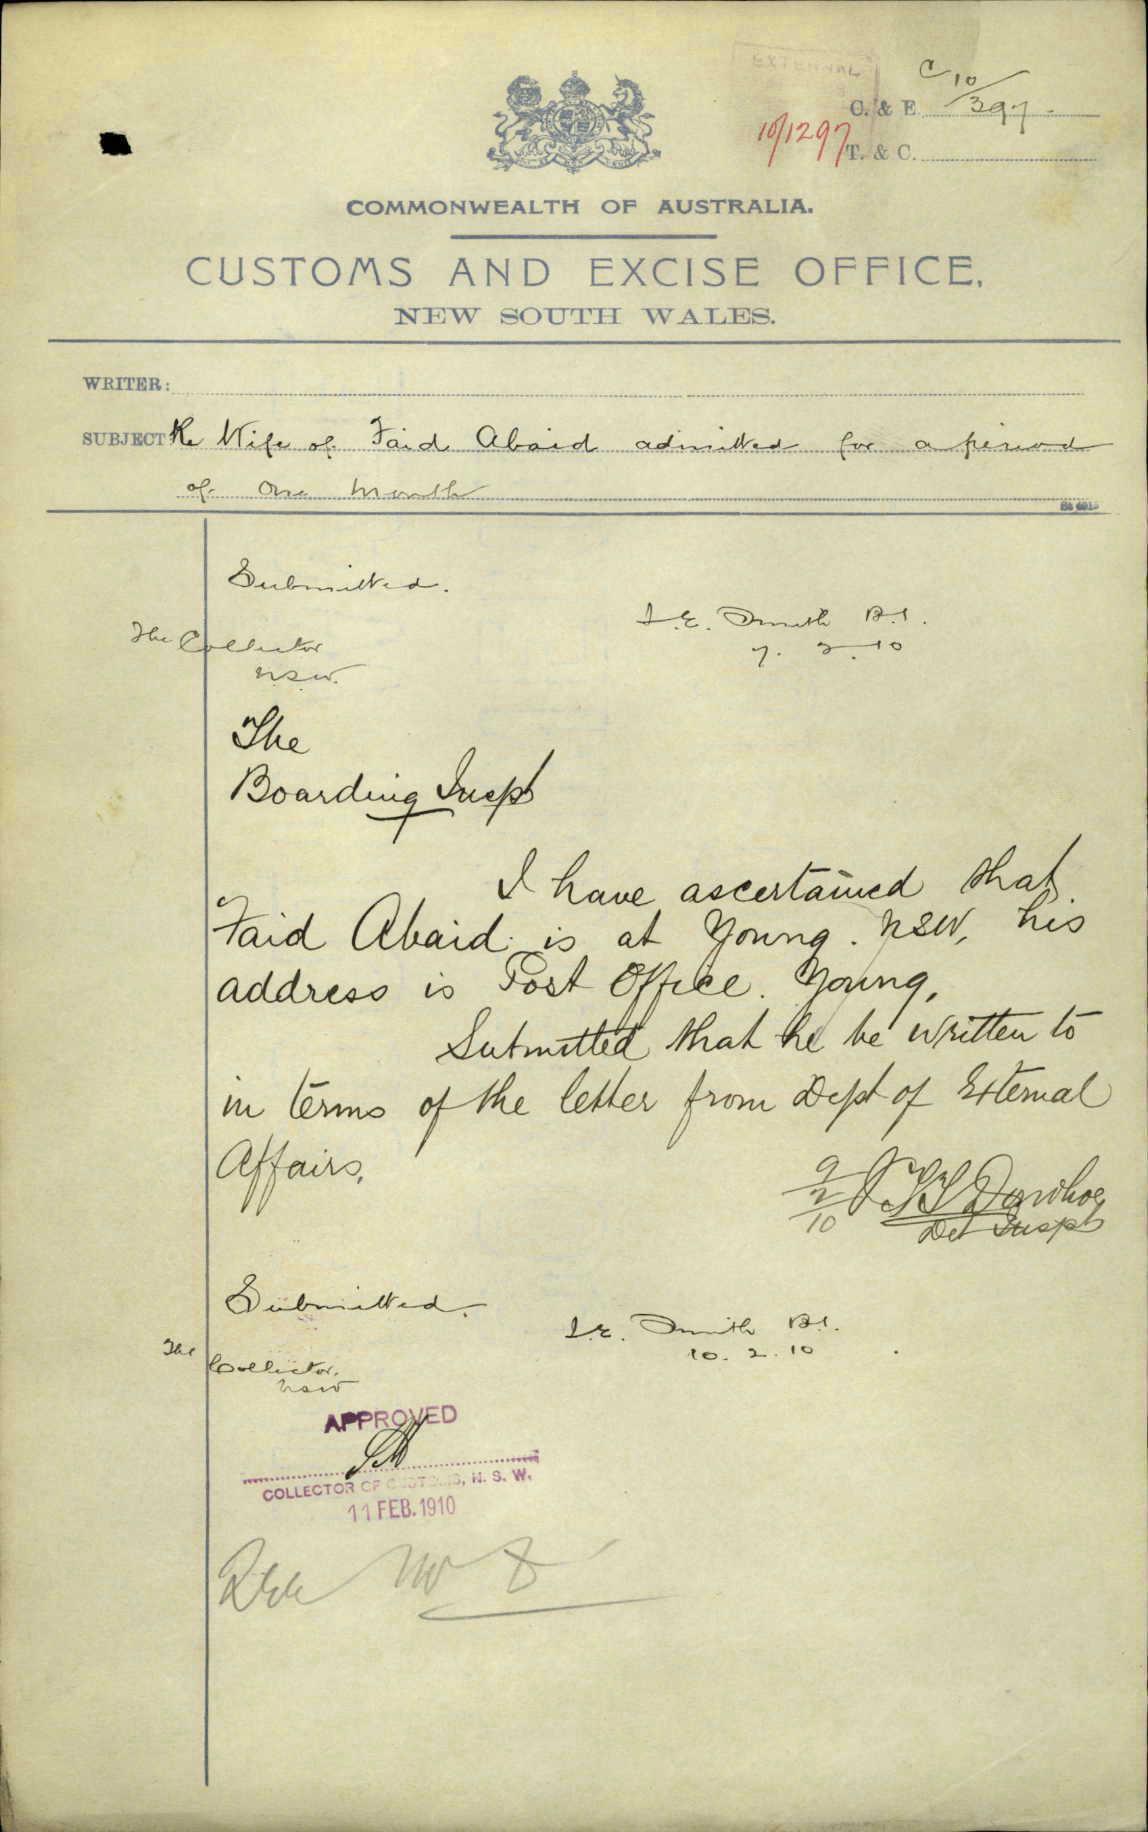 EXTERNAL
C 10/397.
C. & E.
10/1297
T. & C.
COMMONWEALTH OF AUSTRALIA.
CUSTOMS AND EXCISE OFFICE,
NEW SOUTH WALES.
WRITER:
SUBJECT Re Wife of Faid Abaid admitted for a period
of One Month
Submitted.
The Collector
NSW.
I.E. Smith B.I.
7. 2.10
The
Boarding Inspt
I have ascertained that
Faid Abaid is at Young. NSW, his
address is Post Office. Young,
Submitted that he be written to
in terms of the letter from Dept of External
Affairs,
9/2/10
Donohoe
Det Inspt
Submitted.
I.E. Smith B.I.
10. 2. 10
The Collector.
NSW
APPROVED
COLLECTOR OF CUSTOMS, N. S. W.
11 FEB. 1910